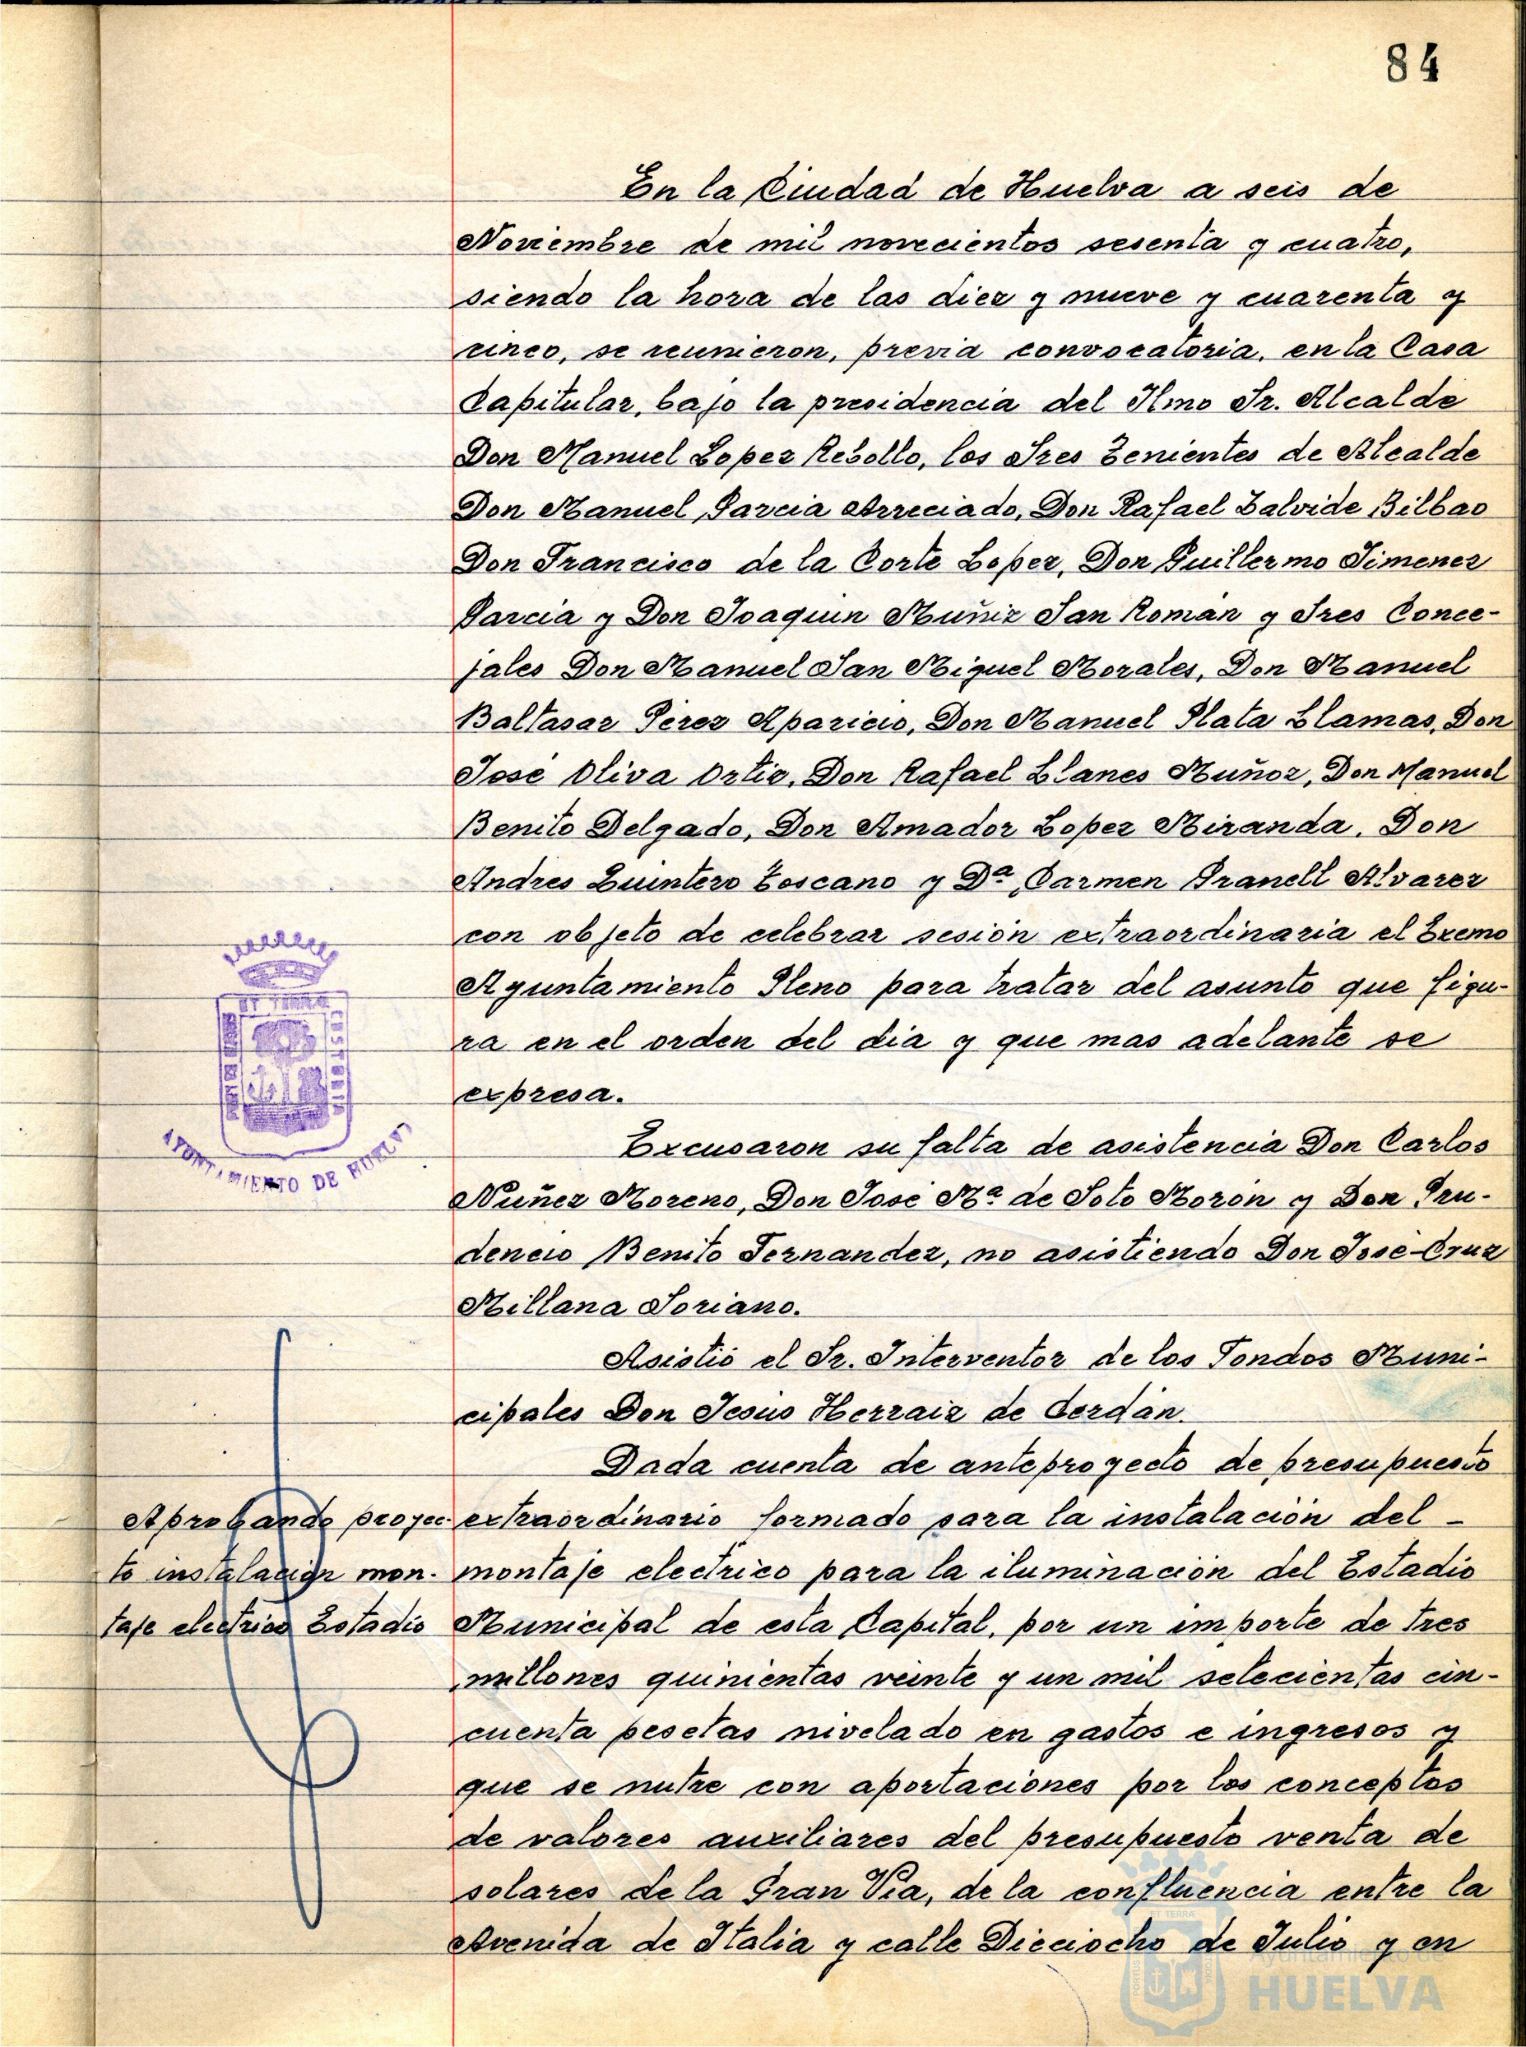 84
En la Ciudad de Huelva a seis de
Noviembre de mil novecientos sesenta y cuatro,
siendo la hora de las diez y nueve y cuarenta y
cinco, se reunieron, previa convocatoria, en la Casa
Capitular, bajo la presidencia del Ilmo Sr. Alcalde
Don Manuel Lopez Rebollo, los Sres Tenientes de Alcalde
Don Manuel Garcia Arreciado, Don Rafael Zalvide Bilbao
Don Francisco de la Corte Lopez, Don Guillermo Jimenez
Garcia y Don Joaquin Muñiz San Román y Sres Conce-
jales Don Manuel San Miguel Morales, Don Manuel
Baltasar Pérez Aparicio, Don Manuel Plata Llamas, Don
José Oliva Ortiz, Don Rafael Llanes Muñoz, Don Manuel
Benito Delgado, Don Amador Lopez Miranda, Don
Andres Quintero Toscano y Dª Carmen Granell Alvarez
con objeto de celebrar sesión extraordinaria el Excmo
Ayuntamiento Pleno para tratar del asunto que figu-
ra en el orden del dia y que mas adelante se
expresa.
Excusaron su falta de asistencia Don Carlos
Nuñez Moreno, Don José Mª de Soto Morón y Don Pru-
dencio Benito Fernandez, no asistiendo Don José-Cruz
Millana Soriano.
Asistió el Sr. Interventor de los Fondos Muni-
cipales Don Jesús Herraiz de Cerdán.
Dada cuenta de anteproyecto de presupuesto
extraordinario formado para la instalación del -
montaje electrico para la iluminación del Estadio
Municipal de esta Capital, por un importe de tres
millones quinientas veinte y un mil setecientas cin-
cuenta pesetas nivelado en gastos e ingresos y
que se nutre con aportaciones por los conceptos
de valores auxiliares del presupuesto venta de
solares de la Gran Via, de la confluencia entre la
Avenida de Italia y calle Dieciocho de Julio y en
Aprobando proyec-
to instalación mon-
taje electrico Estadio
ET TERRÆ
CUSTODIA
AYUNTAMIENTO DE HUELVA
Ayuntamiento de
HUELVA